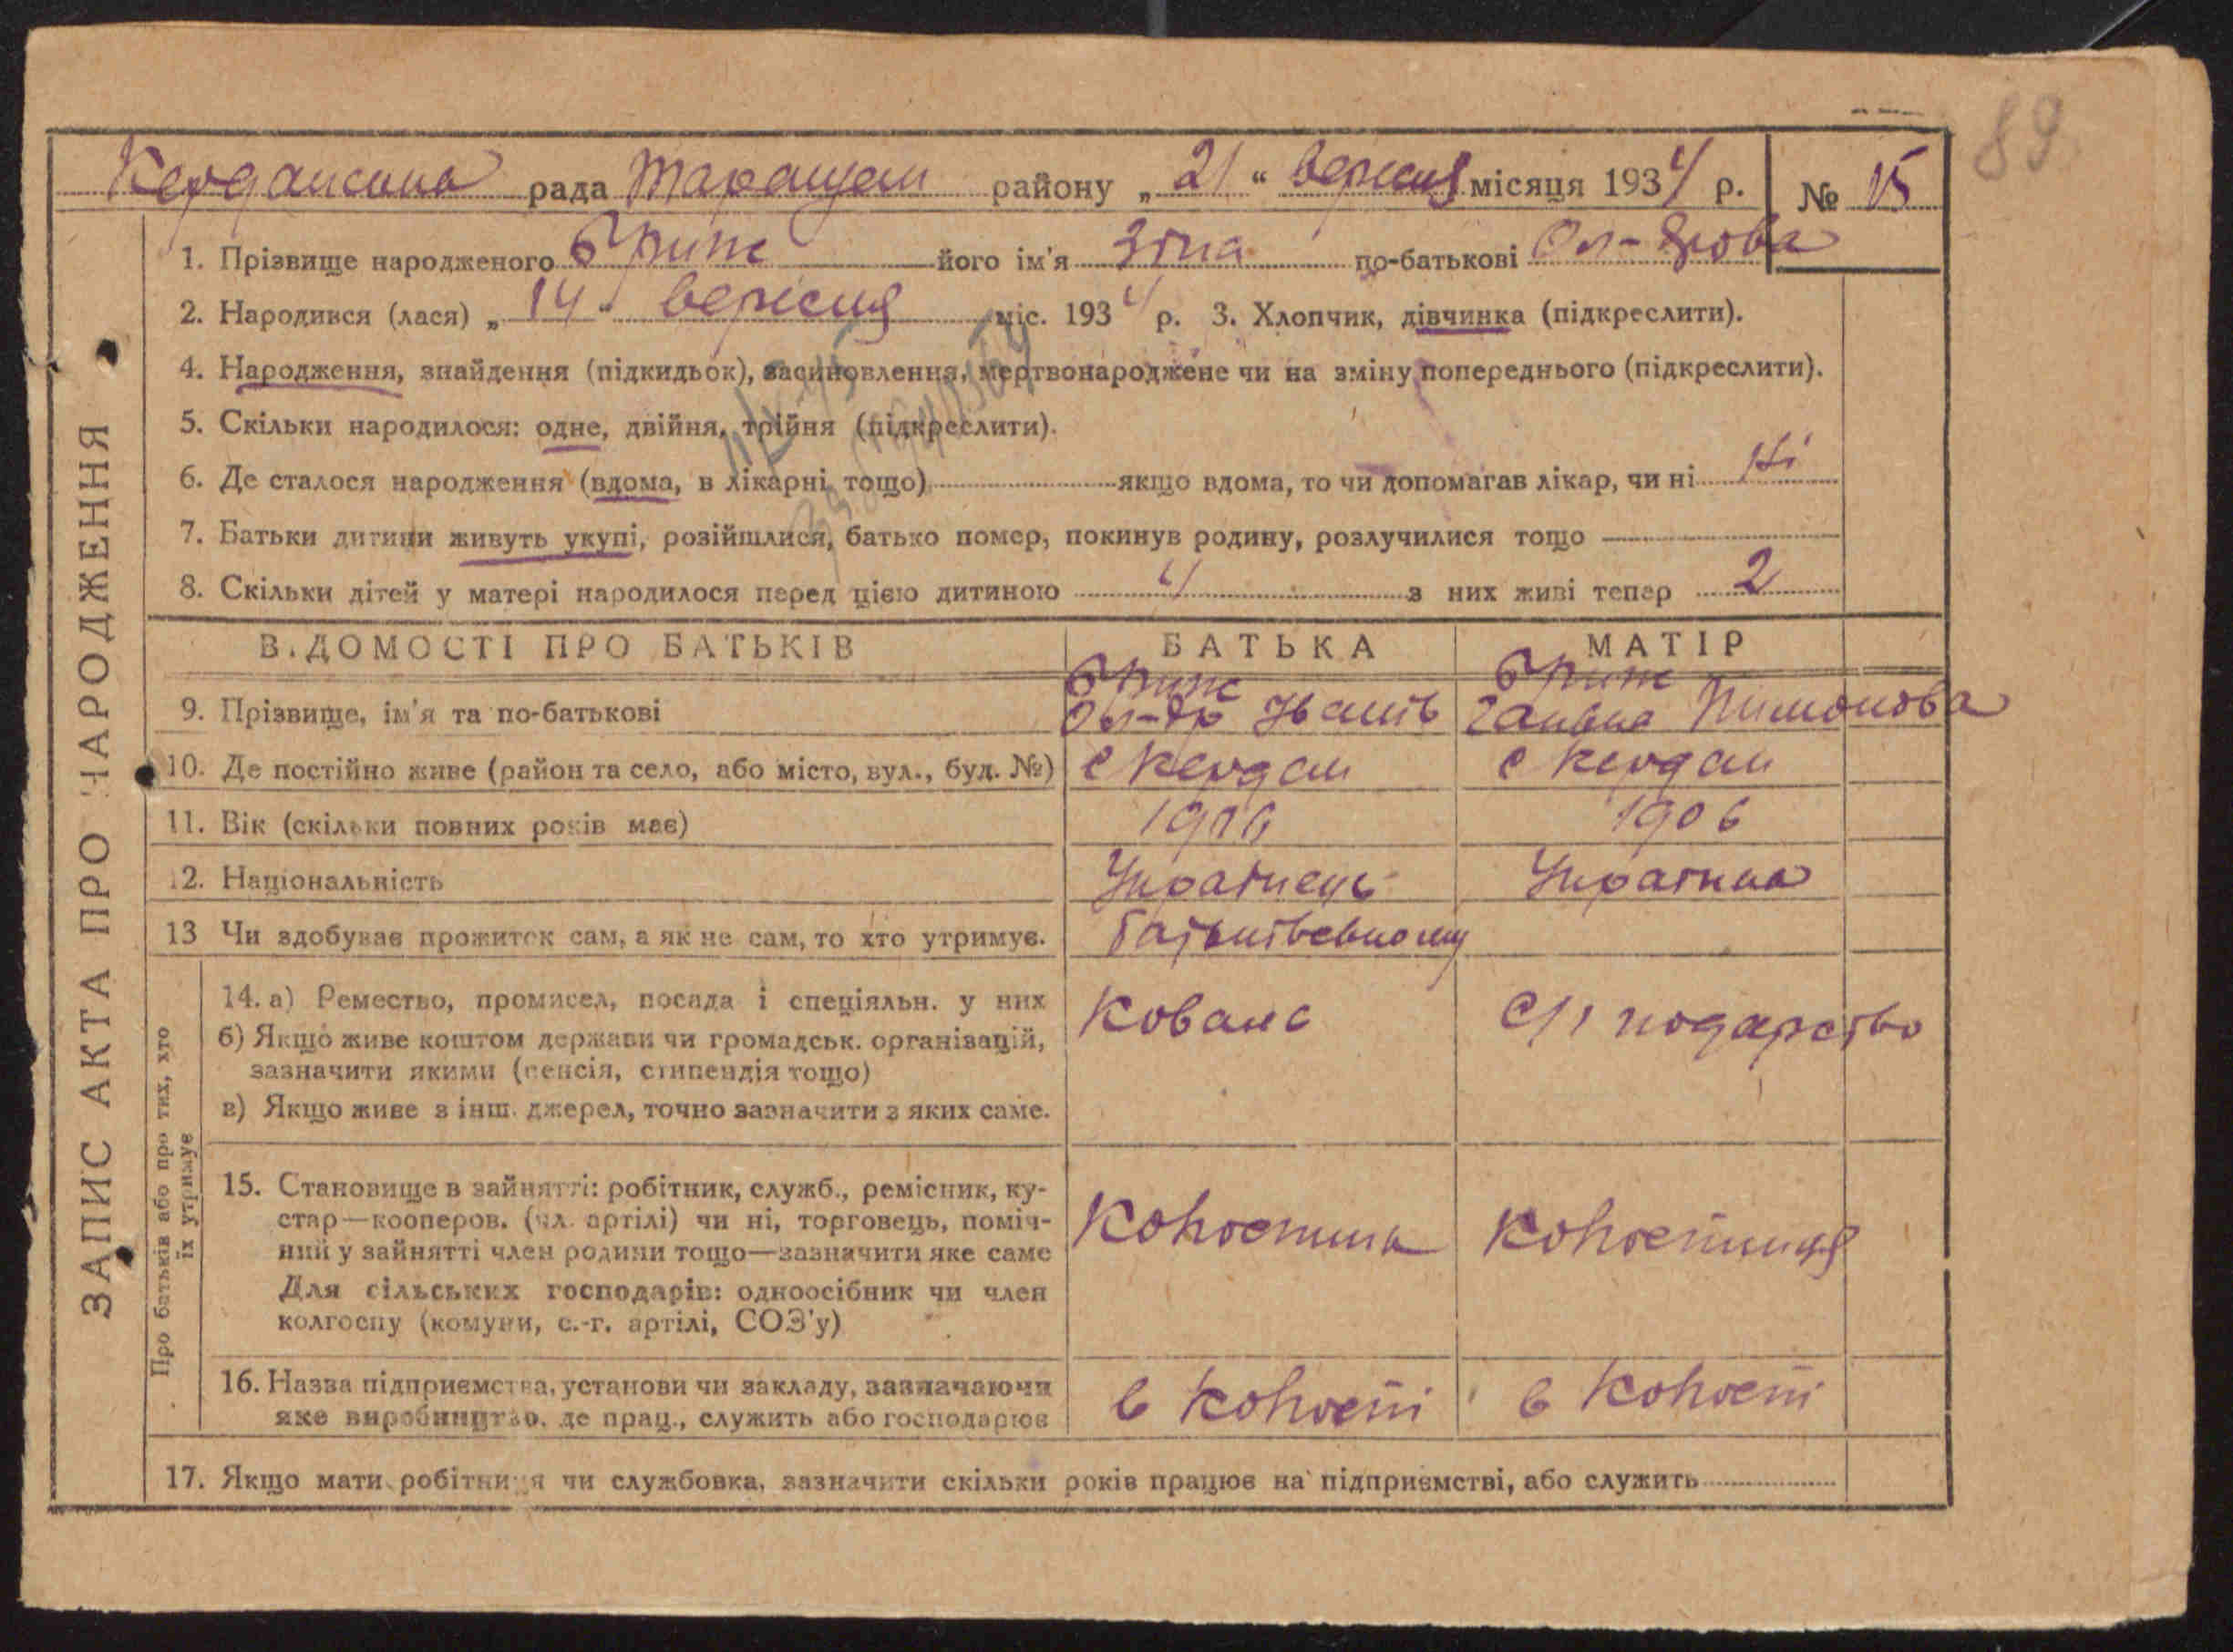 89
Керданська рада Таращан району „21“ вересня місяця 1934 р. № 15
1. Прізвище народженого Бриж його ім'я Зіна по-батькові Ол-дрова
2. Народився (лася) „14“ вересня міс. 1934 р. 3. Хлопчик, дівчинка (підкреслити).
4. Народження, знайдення (підкидьок), засиновлення, мертвонароджене чи на зміну попереднього (підкреслити).
5. Скільки народилося: одне, двійня, трійня (підкреслити).
6. Де сталося народження (вдома, в лікарні тощо) якщо вдома, то чи допомагав лікар, чи ні Ні
7. Батьки дитини живуть укупі, розійшлися, батько помер, покинув родину, розлучилися тощо
8. Скільки дітей у матері народилося перед цією дитиною 4 з них живі тепер 2
ВІДОМОСТІ ПРО БАТЬКІВ БАТЬКА МАТІР
9. Прізвище, ім'я та по-батькові Бриж Ол-др Іванів Бриж Ганна
10. Де постійно живе (район та село, або місто, вул., буд. №) с Кердан с Кердан
11. Вік (скільки повних років має) 1906 1906
12. Національність Українець Українка
13 Чи здобуває прожиток сам, а як не сам, то хто утримує.
14. а) Ремество, промисел, посада і спеціяльн. у них Коваль С/г господарство
б) Якщо живе коштом держави чи громадськ. організацій,
зазначити якими (пенсія, стипендія тощо)
в) Якщо живе з інш. джерел, точно зазначити з яких саме.
15. Становище в зайнятті: робітник, служб., ремісник, ку-
стар—кооперов. (чл. артілі) чи ні, торговець, поміч-
ний у зайнятті член родини тощо—зазначити яке саме
Для сільських господарів: одноосібник чи член
колгоспу (комуни, с.-г. артілі, СОЗ'у)
16. Назва підприємства, установи чи закладу, зазначаючи
яке виробництво, де прац., служить або господарює
17. Якщо мати робітниця чи службовка, зазначити скільки років працює на підприємстві, або служить
ЗАПИС АКТА ПРО НАРОДЖЕННЯ
Про батьків або про тих, хто
їх утримує